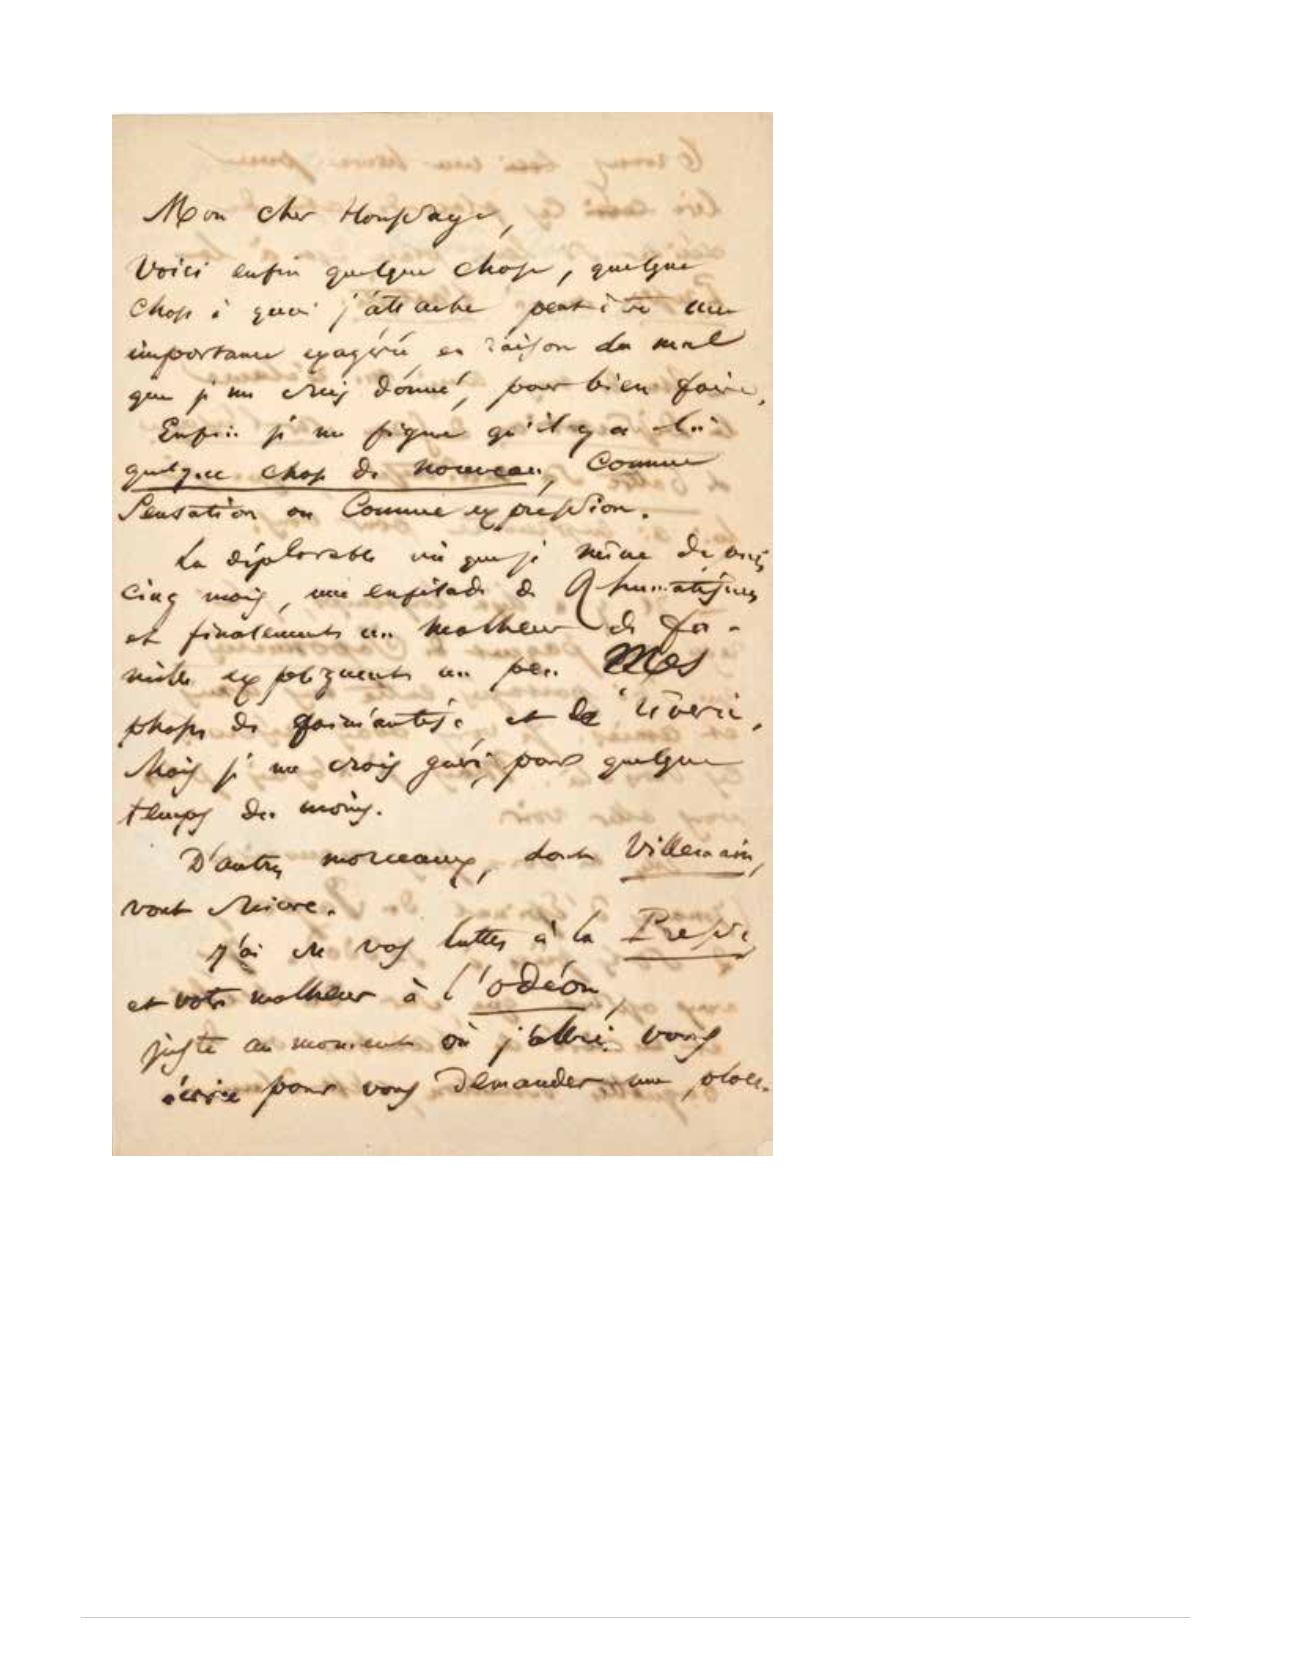 Mon cher Houssaye,
Voici enfin quelque chose, quelque
chose à quoi j'attache peut-être une
importance exagérée en raison du mal
que je me suis donné, pour bien faire.
Enfin je me figure qu'il y a là
quelque chose de nouveau, comme
Sensation ou comme expression.
La déplorable vie que je mène depuis
cinq mois, une enfilade de Rhumatismes
et finalement un malheur de fa-
mille expliquent un peu Mes
phases de fainéantise et de rêverie.
Mais je me crois guéri, pour quelque
temps du moins.
D'autres morceaux, dont Villemain,
vont suivre.
J'ai su vos luttes à la Presse,
et votre malheur à l'odéon,
juste au moment où j'allais vous
écrire pour vous demander une place.